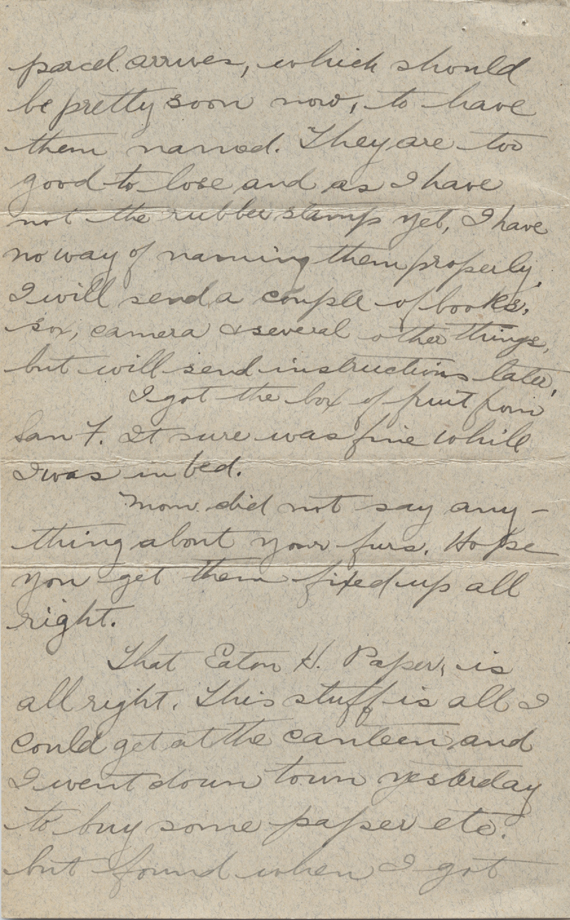 parcel arrives, which should
be pretty soon now, to have
them named. They are too
good to lose and as I have
not the rubber stamp yet, I have
no way of naming them properly.
I will send a couple of books,
sox, camera & several other things,
but will send instructions later.
I got the box of fruit from
San F. It sure was fine while
I was in bed.
Mom did not say any-
thing about your furs. Hope
you get them fixed up all
right.
That Eaton H. Paper, is
all right. This stuff is all I
could get at the canteen and
I went down town yesterday
to buy some paper etc.
but found when I got